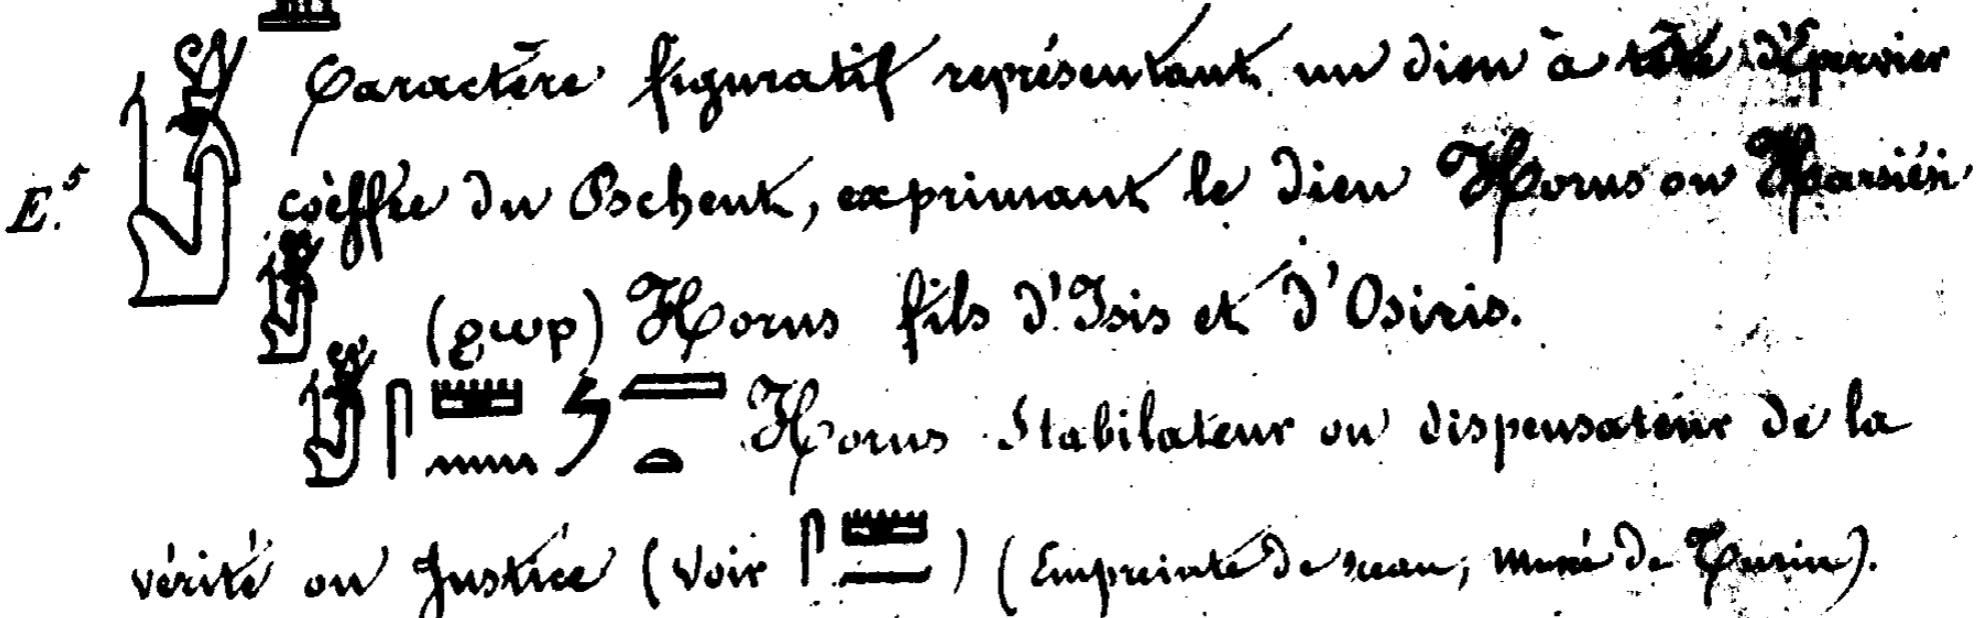 Caractère figuratif représentant un dieu à tête d'Épervier
E.⁵ coèffée du Pschent, exprimant le dieu Horus ou Harsiési
(ϩωρ) Horus fils d'Isis et d'Osiris.
Horus Stabilateur ou dispensateur de la
vérité ou Justice (Voir ) (Empreinte de sceau, musée de Turin).